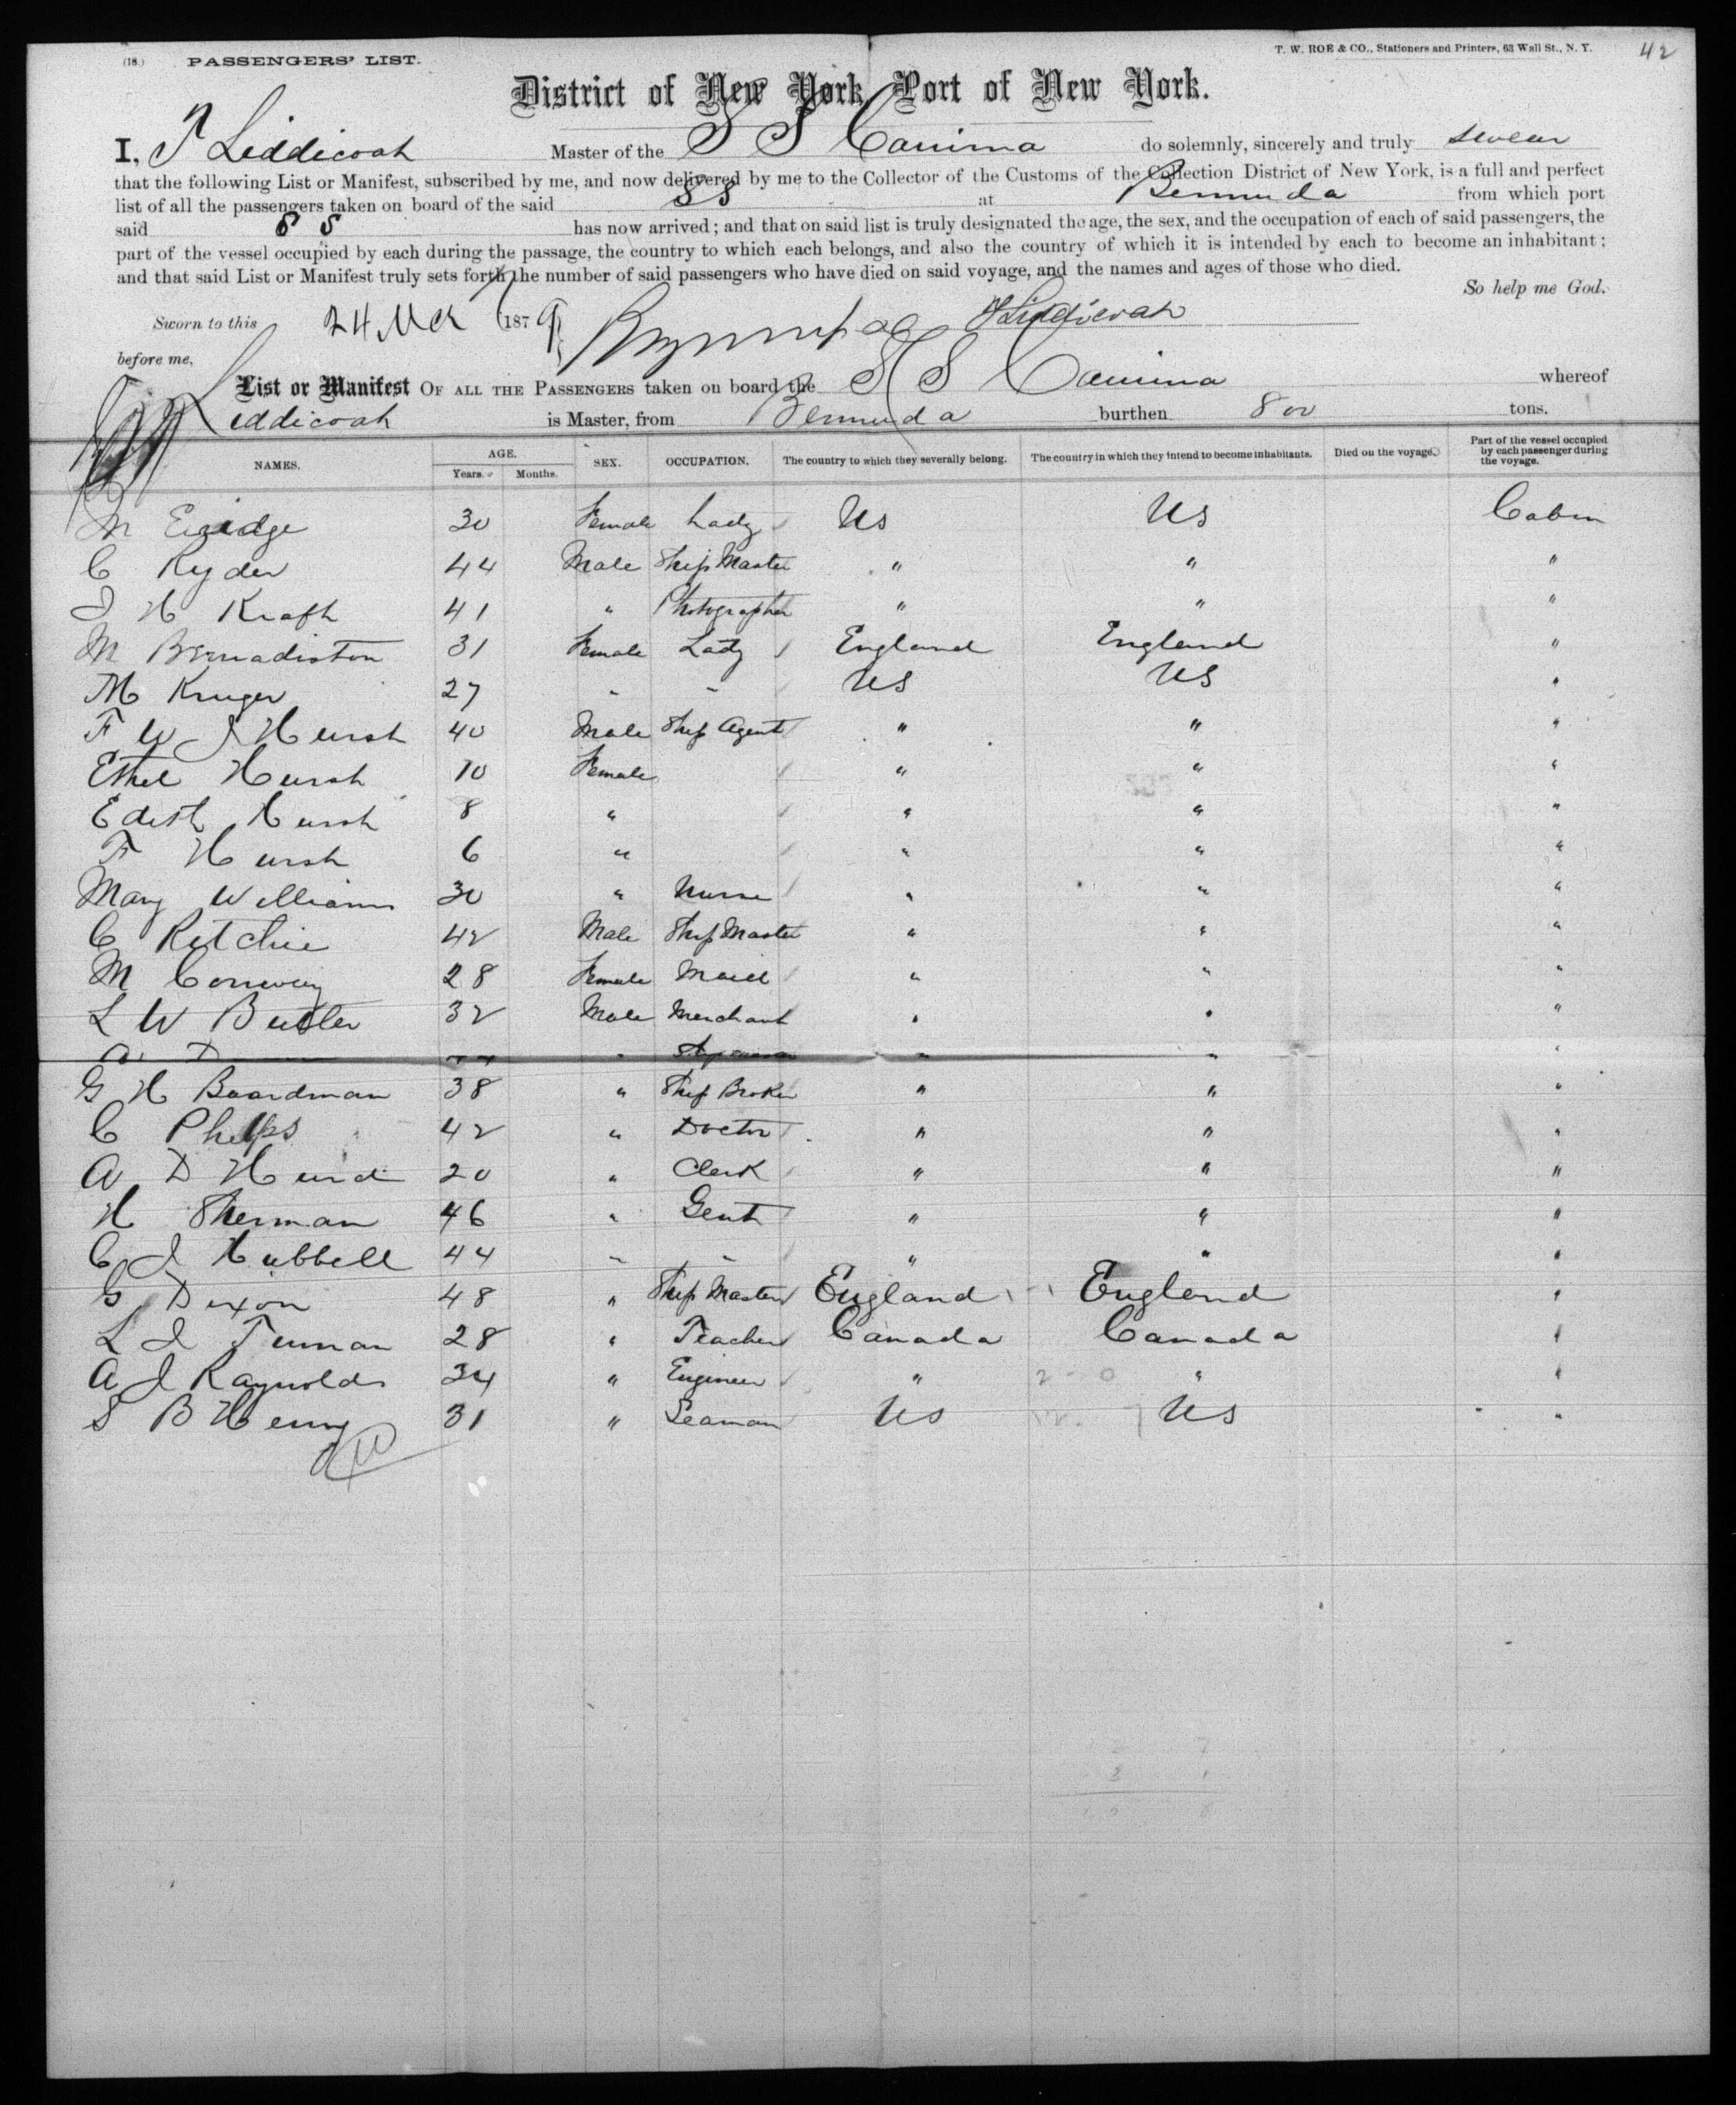 (18.) PASSENGERS' LIST. T. W. ROE & CO., Stationers and Printers, 63 Wall St., N. Y. 42
District of New York Port of New York.
I, Liddicoat Master of the S S Canima do solemnly, sincerely and truly swear
that the following List or Manifest, subscribed by me, and now delivered by me to the Collector of the Customs of the Collection District of New York, is a full and perfect
list of all the passengers taken on board of the said SS at Bermuda from which port
said S S has now arrived; and that on said list is truly designated the age, the sex, and the occupation of each of said passengers, the
part of the vessel occupied by each during the passage, the country to which each belongs, and also the country of which it is intended by each to become an inhabitant;
and that said List or Manifest truly sets forth the number of said passengers who have died on said voyage, and the names and ages of those who died.
So help me God.
Sworn to this 24 Mch 1879 Liddicoat
before me,
List or Manifest OF ALL THE PASSENGERS taken on board the S S Canima whereof
Liddicoat is Master, from Bermuda burthen 800 tons.
NAMES. AGE. Years. Months. SEX. OCCUPATION. The country to which they severally belong. The country in which they intend to become inhabitants. Died on the voyage. Part of the vessel occupied by each passenger during the voyage.
M 30 Female Lady US US Cabin
C Ryder 44 Male Ship Master " " "
J H Kraft 41 " Photographer " " "
M 31 Female Lady England England "
M Kruger 27 " " US US "
F W J Hurst 40 Male Ship Agent " " "
Ethel Hurst 10 Female " " "
Edith Hurst 8 " " " "
F Hurst 6 " " " "
Mary Williams 30 " Nurse " " "
C Ritchie 42 Male Ship Master " " "
M Conway 28 Female Maid " " "
L W Butler 32 Male Merchant " " "
G H Boardman 38 " Ship Broker " " "
C Phelps 42 " Doctor " " "
A D Hurd 20 " Clerk " " "
H Sherman 46 " Gent " " "
C J Hubbell 44 " " " " "
G Dixon 48 " Ship Master England England "
L J 28 " Teacher Canada Canada "
A J Raynolds 34 " Engineer " " "
S B Henry 31 " Seaman US US "